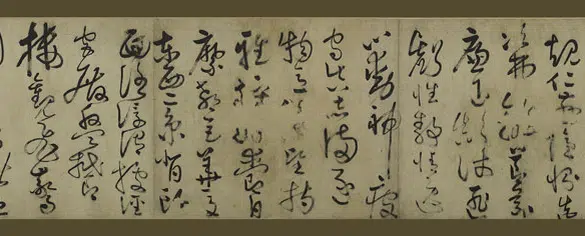 規仁慈隱惻造
次弗離節義
廉退顛沛匪
虧性靜情逸
心動神疲
守真志滿逐
物意移堅持
雅操好爵自
縻都邑華夏
東西二京背邙
面洛浮渭據涇
宮殿盤鬱
樓觀飛驚